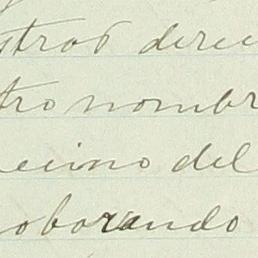 stros derec
tro nombr
ecino del
oborando